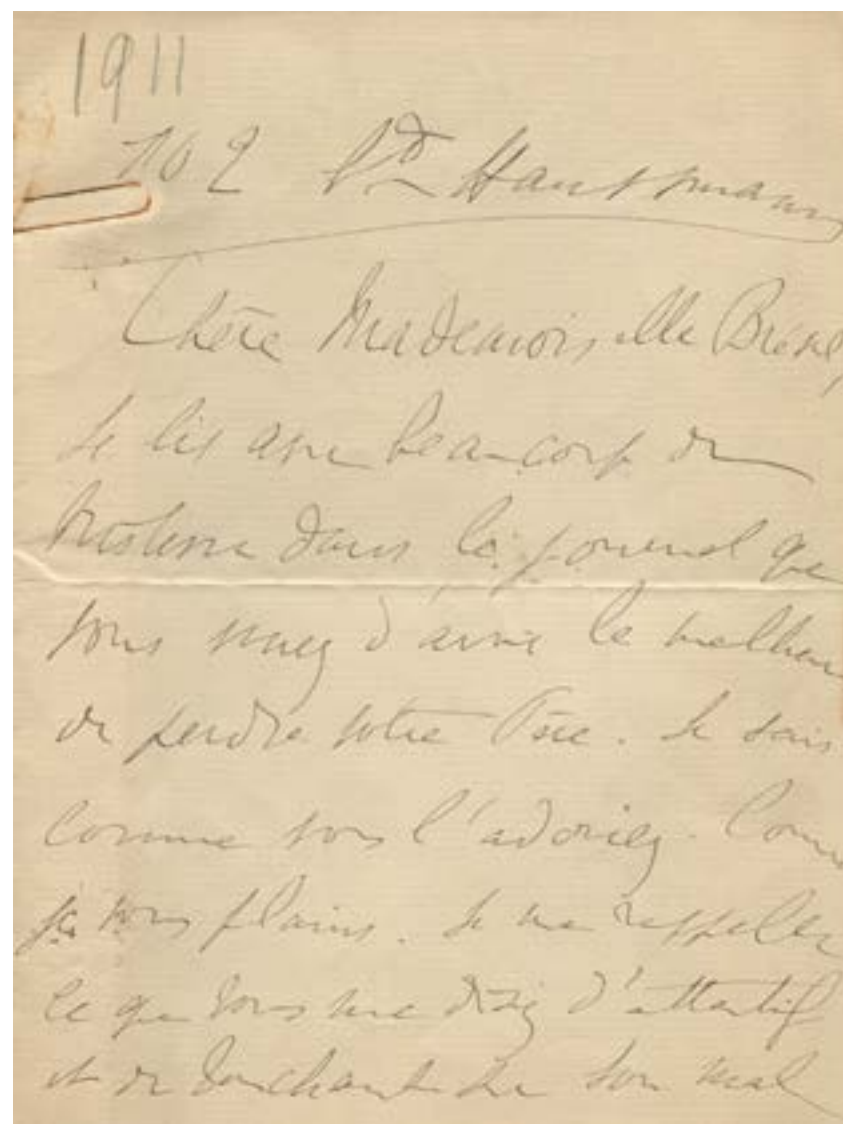 1911
102 Bd Haussmann
Chère Mademoiselle
Je lis avec beaucoup de
tristesse dans le journal que
vous venez d'avoir le malheur
de perdre votre Père. Je sais
comme vous l'adoriez. Comme
je vous plains. Je me rappelle
ce que vous me disiez d'attentif
et de touchant sur son mal